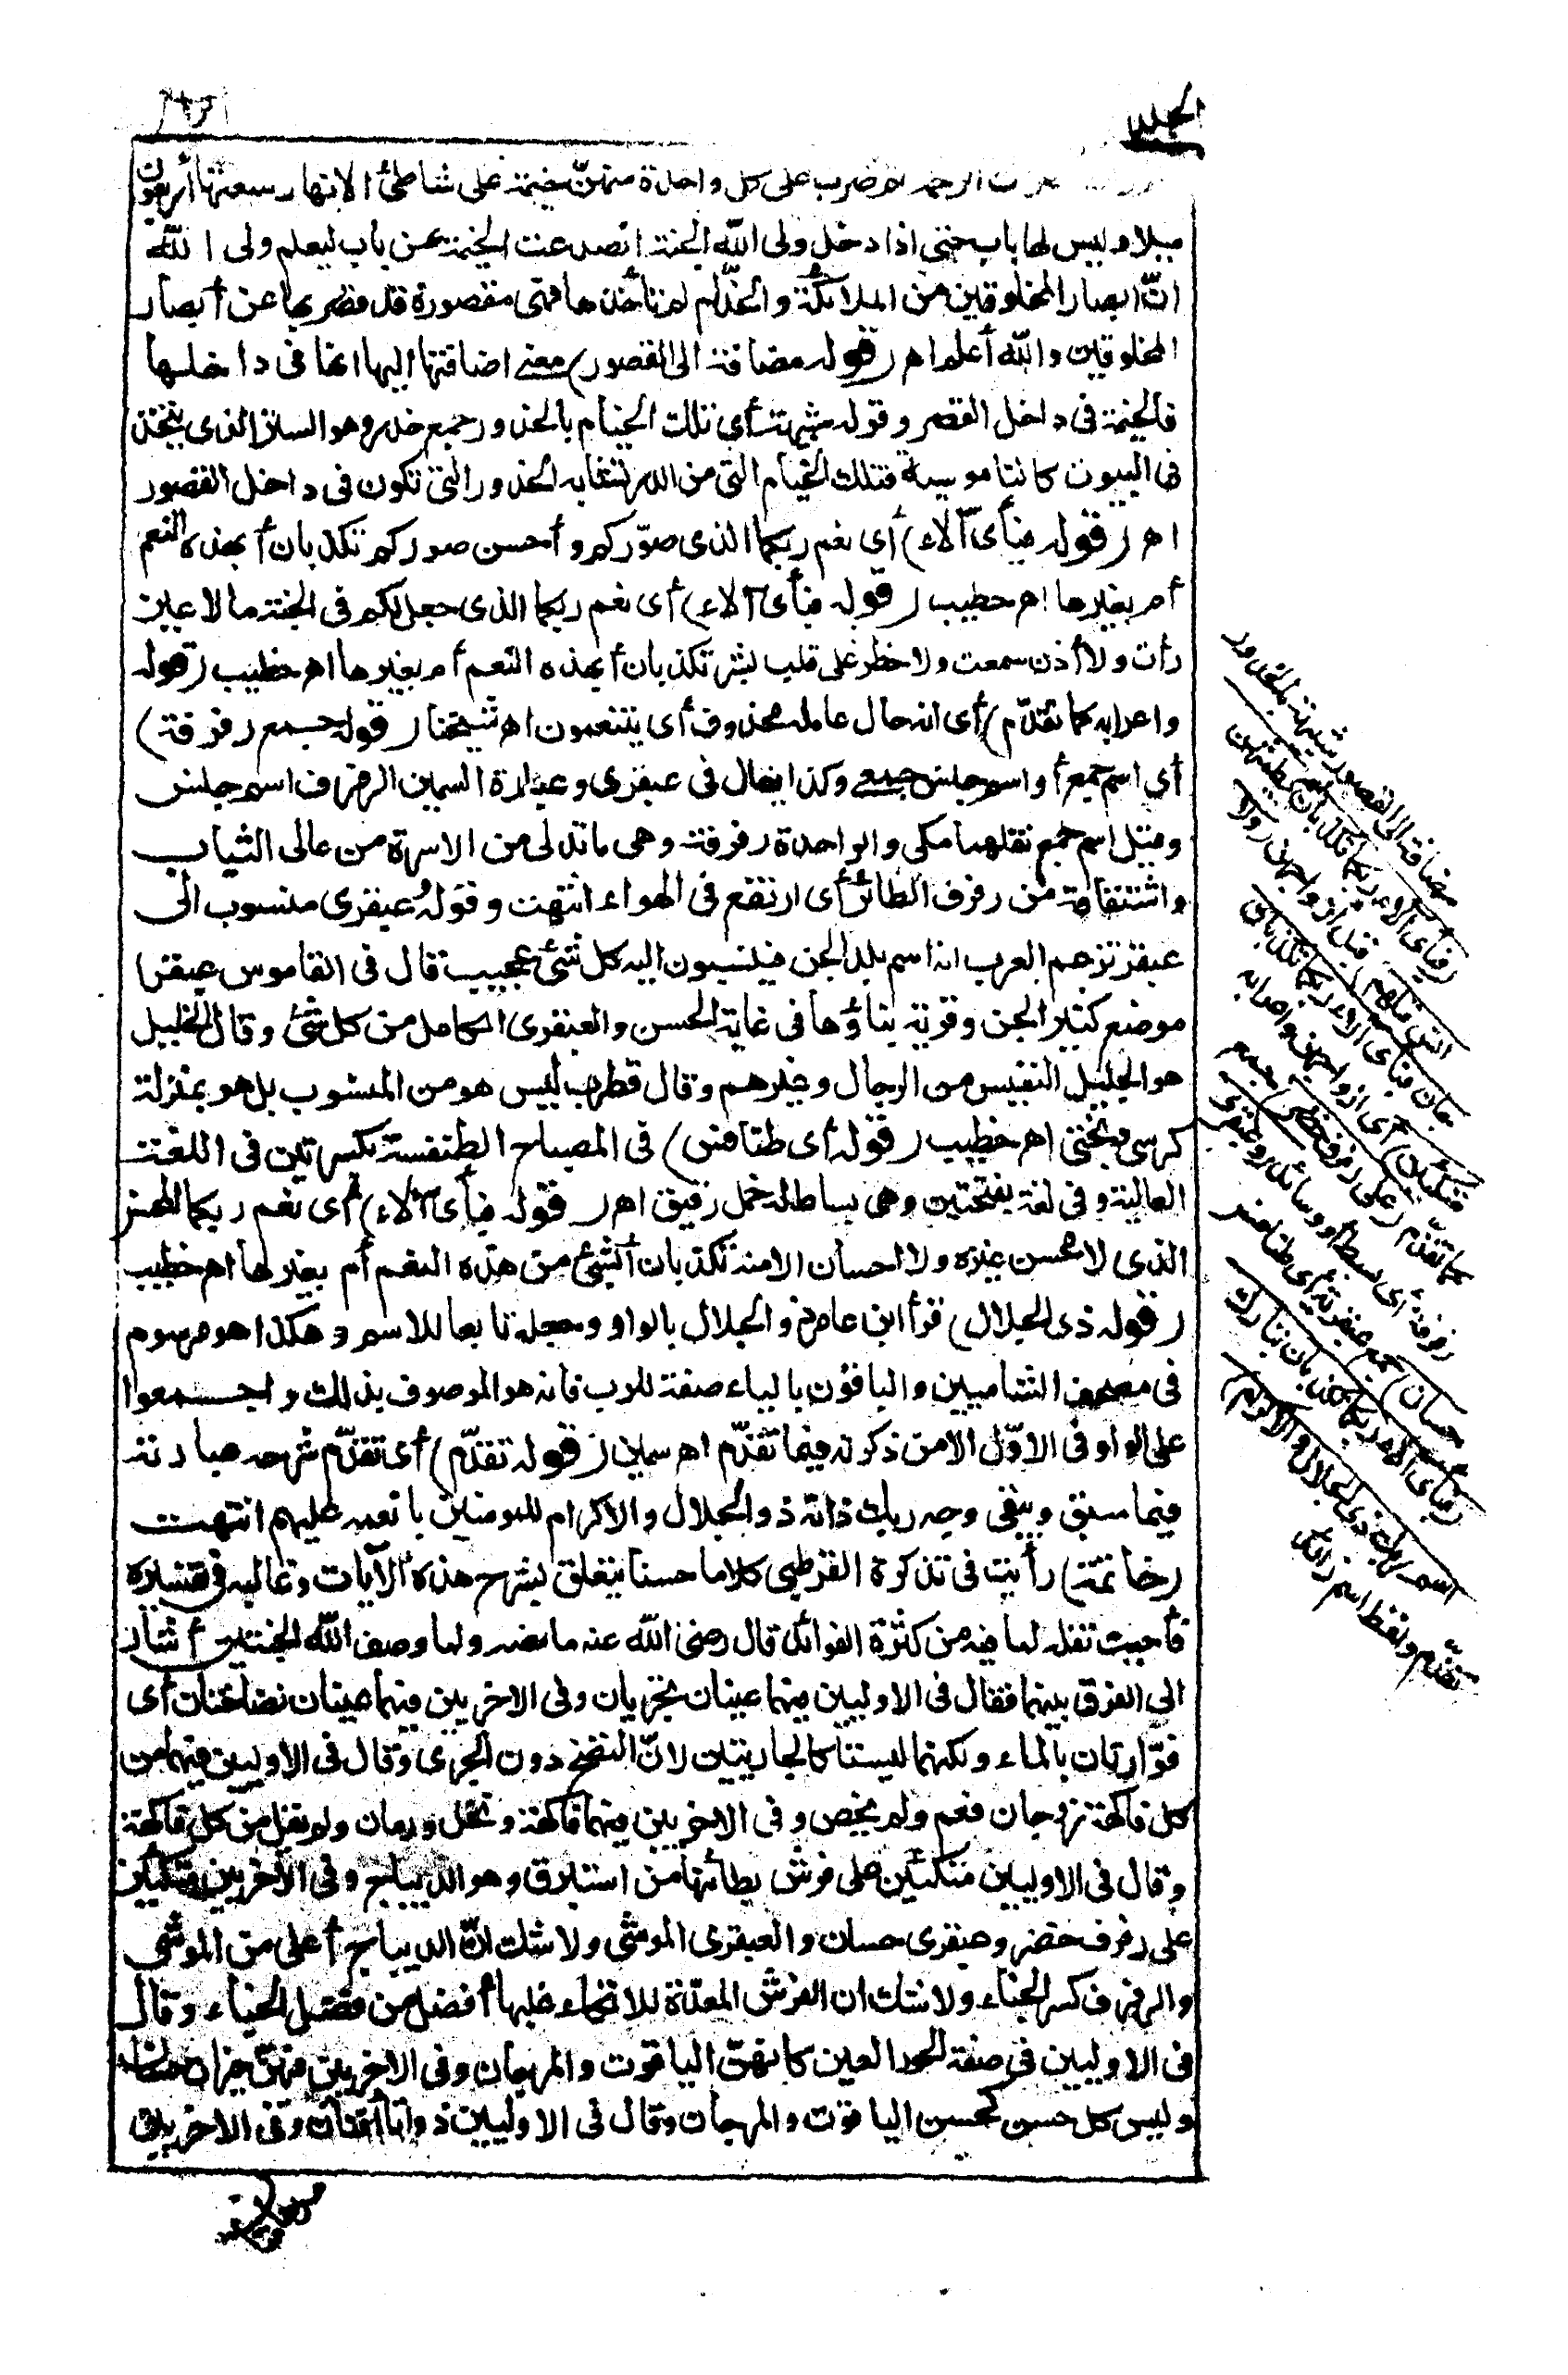 الجمل
ثم ضرب على كل واحدة منهنّ خيمة على شاطئ الانهار سعتها أربعون
ميلا وليس لها باب حتى اذا دخل ولى اللّه الجنة انصدعت الخيمة عن باب ليعلم ولى اللّه
انّ ابصار المخلوقين من الملائكة والخدّام لم تأخذها فهى مقصورة قد قصر بها عن أبصار
المخلوقين واللّه أعلم اهـ (قوله مضافة الى القصور) معنى اضافتها اليها انها فى داخلها
فالخيمة فى داخل القصر وقوله شبيهة أى تلك الخيام بالخدور جميع خدر وهو الستر الذى يتخذ
فى البيوت كالناموسية فتلك الخيام التى من الدر تشابه الخدور التى تكون فى داخل القصور
اهـ (قوله فبأى آلاء) أى نعم ربكما الذى صوّركم وأحسن صوركم تكذبان أبهذه النعم
أم بغيرها اهـ خطيب (قوله فبأى آلاء) أى نعم ربكما الذى جعل لكم فى الجنة ما لا عين
رأت ولا أذن سمعت ولا خطر على قلب بشر تكذبان أبهذه النعم أم بغيرها اهـ خطيب (قوله
واعرابه كما تقدّم) أى انه حال عامله محذوف أى يتنعمون اهـ شيخنا (قوله جمع رفرفة)
أى اسم جمع أو اسم جنس جمعى وكذا يقال فى عبقرى وعبارة السمين الرفرف اسم جنس
وقيل اسم جمع نقلهما مكى والواحدة رفرفة وهى ما تدلى من الاسرة من عالى الثياب
واشتقاقه من رفرف الطائر أى ارتفع فى الهواء انتهت وقوله عبقرى منسوب الى
عبقر تزعم العرب انه اسم بلد الجن فينسبون اليه كل شئ عجيب قال فى القاموس عبقر
موضع كثير الجن وقرية بناؤها فى غاية الحسن والعبقرى الكامل من كل شئ وقال الخليل
هو الجليل النفيس من الرجال وغيرهم وقال قطرب ليس هو من المنسوب بل هو بمنزلة
كرسى وبختى اهـ خطيب (قوله أى طنافس) فى المصباح الطنفسة بكسرتين فى اللغة
العالية وفى لغة بفتحتين وهى بساط له خمل رقيق اهـ (قوله فبأى آلاء) أى نعم ربكما المحسن
الذى لا محسن غيره ولا احسان الا منه تكذبان أبشئ من هذه النعم أم بغيرها اهـ خطيب
(قوله ذى الجلال) قرأ ابن عامر ذو الجلال بالواو وجعله تابعا للاسم وهكذا هو مرسوم
فى مصحف الشاميين والباقون بالياء صفة للرب فانه هو الموصوف بذلك واجمعوا
على الواو فى الاوّل الا من ذكرته فيما تقدّم اهـ سمين (قوله تقدّم) أى تقدّم شرحه عبارته
فيما سبق ويبقى وجه ربك ذاته ذو الجلال والاكرام للمؤمنين بأنعمه عليهم انتهت
(خاتمة) رأيت فى تذكرة القرطبى كلاما حسنا يتعلق بشرح هذه الآيات وغالبه فى تفسيره
فأحببت نقله لما فيه من كثرة الفوائد قال رضى اللّه عنه ما نصه ولما وصف اللّه الجنتين أشار
الى الفرق بينهما فقال فى الاوليين فيهما عينان تجريان وفى الاخريين فيهما عينان نضاختان أى
فوّارتان بالماء ولكنهما ليستا كالجاريتين لانّ النضخ دون الجرى وقال فى الاوليين فيهما من
كل فاكهة زوجان فعم ولم يخص وفى الاخريين فيهما فاكهة ونخل ورمان ولم يقل من كل فاكهة
وقال فى الاوليين متكئين على فرش بطائنها من استبرق وهو الديباج وفى الاخريين متكئين
على رفرف خضر وعبقرى حسان والعبقرى الموشى ولا شك انّ الديباج أعلى من الموشى
والرفرف كسر الخباء ولا شك ان الفرش المعدّة للاتكاء عليها أفضل من فضل الخباء وقال
فى الاوليين فى صفة الحور العين كانهنّ الياقوت والمرجان وفى الاخريين فيهنّ خيرات حسان
وليس كل حسن كحسن الياقوت والمرجان وقال فى الاوليين ذواتا أفنان وفى الاخريين
مضافة الى القصور شبيهة بالخدور
(فبأى آلاء ربكما تكذبان لم يطمثهن
انس قبلهم) قبل أزواجهن (ولا
جان فبأى آلاء ربكما تكذبان
متكئين) أى أزواجهن واعرابه
كما تقدّم (على رفرف خضر) جمع
رفرفة أى بسط أو وسائد (وعبقرى
حسان) جمع عبقرية أى طنافس
(فبأى آلاء ربكما تكذبان تبارك
اسم ربك ذى الجلال والاكرام)
تقدّم ولفظ اسم زائد